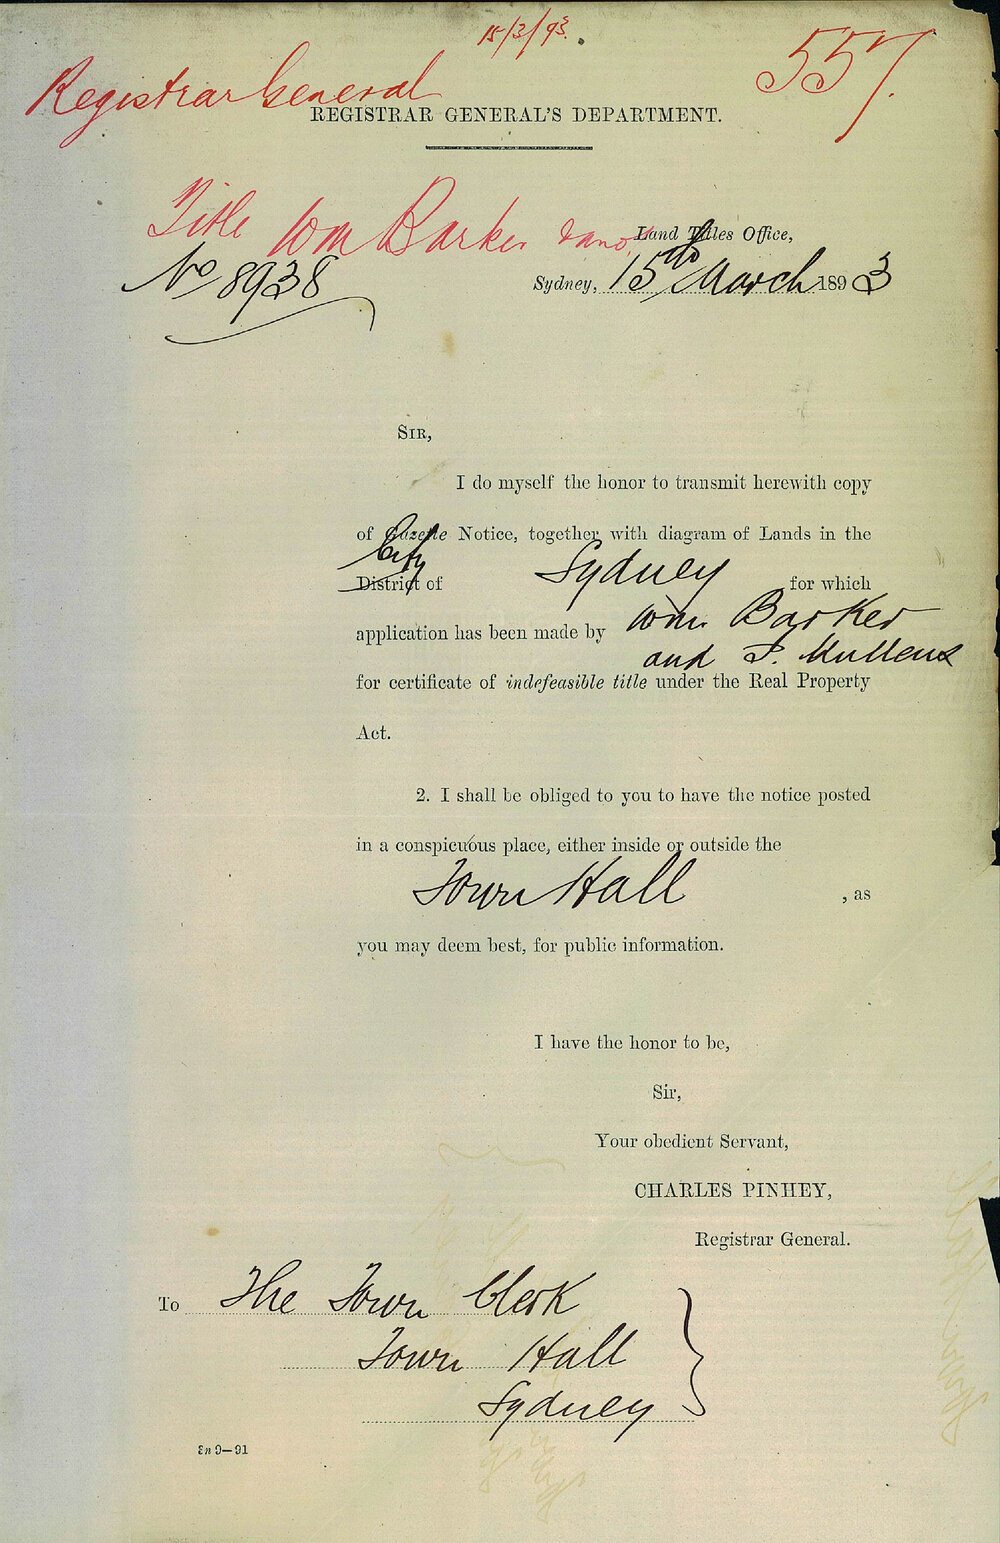 15/3/93.
557.
Registrar General
REGISTRAR GENERAL'S DEPARTMENT.
Title Wm Barker & ano.
Land Titles Office,
No 8938
Sydney, 15th March 1893
SIR,
I do myself the honor to transmit herewith copy
of Gazette Notice, together with diagram of Lands in the
City
District of Sydney for which
application has been made by Wm. Barker
and J. Mullens
for certificate of indefeasible title under the Real Property
Act.
2. I shall be obliged to you to have the notice posted
in a conspicuous place, either inside or outside the
Town Hall , as
you may deem best, for public information.
I have the honor to be,
Sir,
Your obedient Servant,
CHARLES PINHEY,
Registrar General.
To The Town Clerk
Town Hall
Sydney
9—91